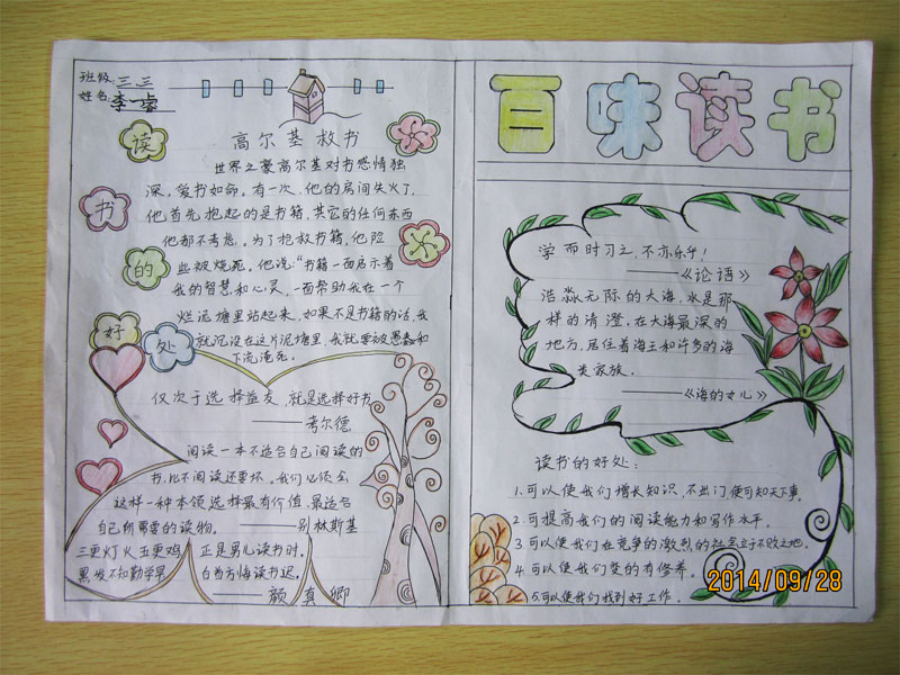 班级:三三
姓名:李一睿
读
书
的
好
处
高尔基救书
世界之豪高尔基对书感情独
深,爱书如命。有一次,他的房间失火了,
他首先抱起的是书籍,其它的任何东西
他都不考虑。为了抢救书籍,他险
些被烧死。他说:“书籍一面启示着
我的智慧和心灵,一面帮助我在一个
烂泥塘里站起来,如果不是书籍的话,我
就沉没在这片泥塘里,我就要被愚蠢和
下流淹死。
仅次于选择益友,就是选择好书
——考尔德
阅读一本不适合自己阅读的
书,比不阅读还要坏。我们必须会
这样一种本领选择最有价值、最适合
自己所需要的读物。——别林斯基
三更灯火五更鸡 正是男儿读书时。
黑发不知勤学早 白首方悔读书迟。
——颜真卿
百味读书
学而时习之,不亦乐乎!
——《论语》
浩淼无际的大海,水是那
样的清澄,在大海最深的
地方,居住着海王和许多的海
类家族。
——《海的女儿》
读书的好处:
1.可以使我们增长知识,不出门便可知天下事。
2.可提高我们的阅读能力和写作水平。
3.可以使我们在竞争的激烈的社会立于不败之地。
4.可以使我们变的有修养。
5.可以使我们找到好工作。
2014/09/28